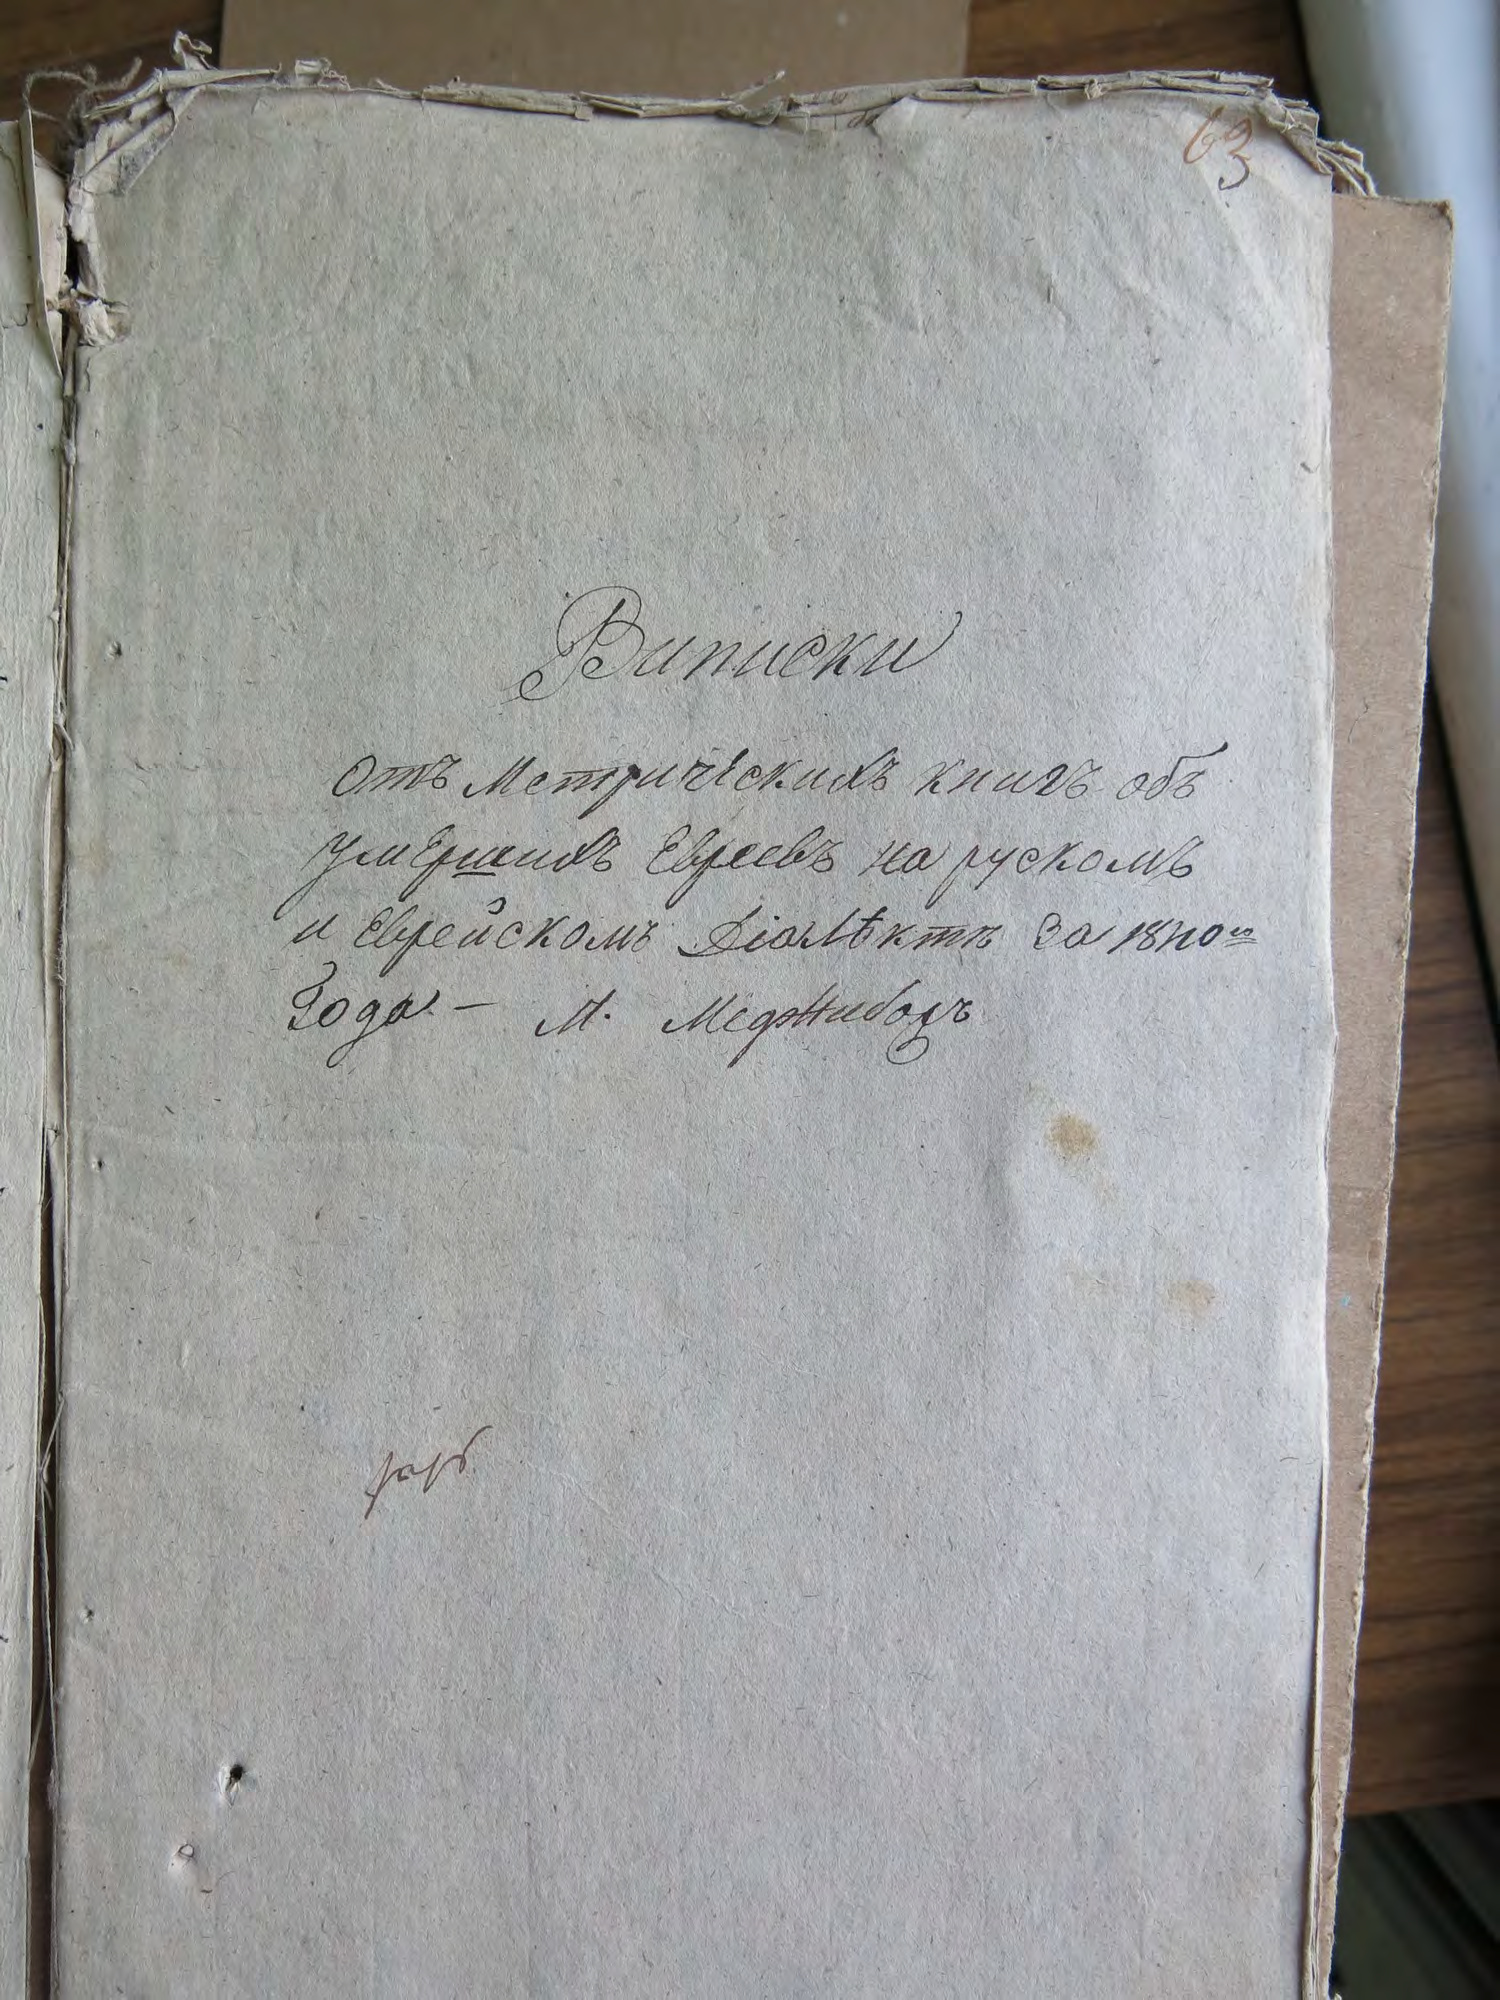 63
Виписки
отъ Метрическихъ книгъ объ
умершихъ Евреевъ на рускомъ
и Еврейскомъ Діалѣктъ За 1870го
Года — М. Меджибожъ